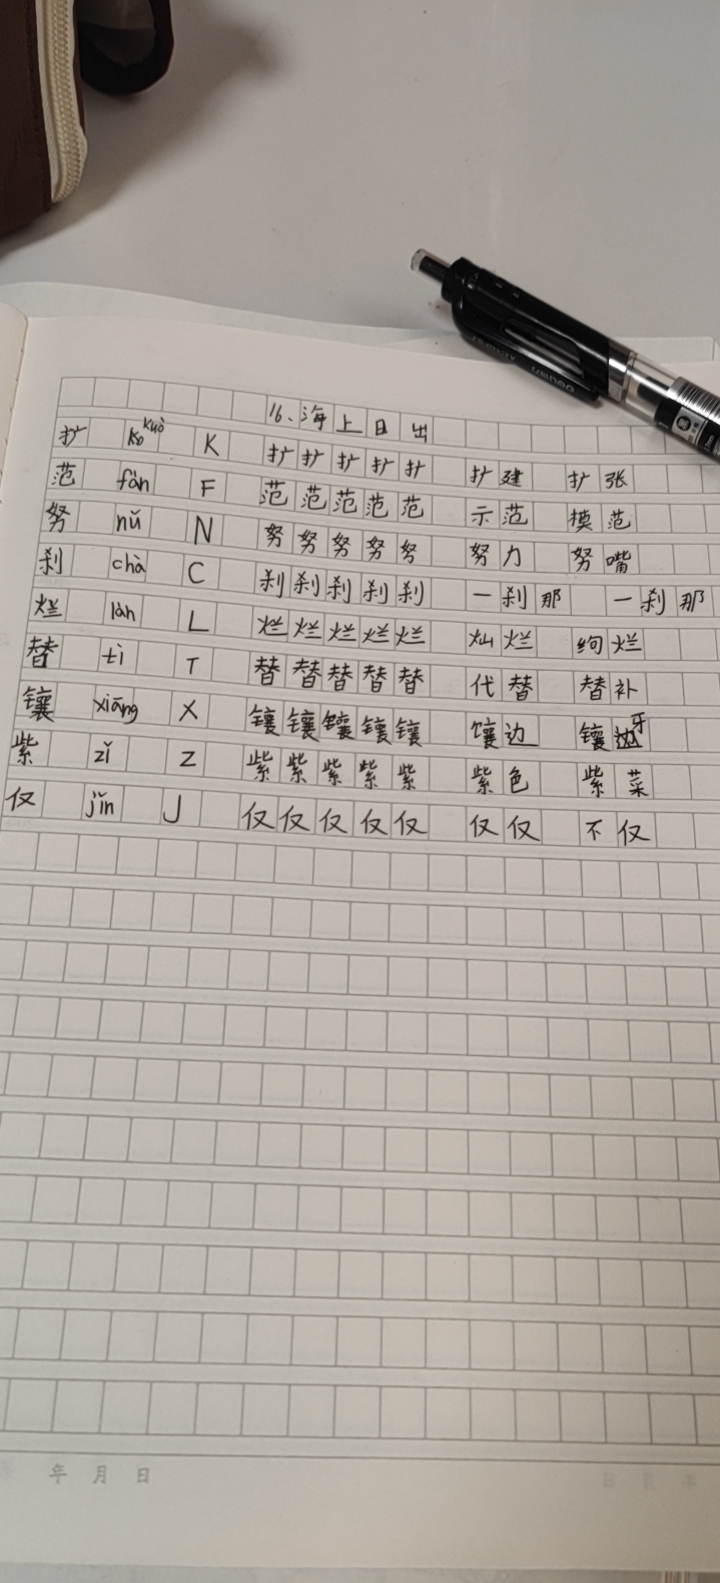 16、海上日出
扩 kuò K 扩扩扩扩扩 扩建 扩张
范 fàn F 范范范范范 示范 模范
努 nǔ N 努努努努努 努力 努嘴
刹 chà C 刹刹刹刹刹 一刹那 一刹那
烂 làn L 烂烂烂烂烂 灿烂 绚烂
替 tì T 替替替替替 代替 替补
镶 xiāng X 镶镶镶镶镶 镶边 镶牙
紫 zǐ Z 紫紫紫紫紫 紫色 紫菜
仅 jǐn J 仅仅仅仅仅 仅仅 不仅
年 月 日